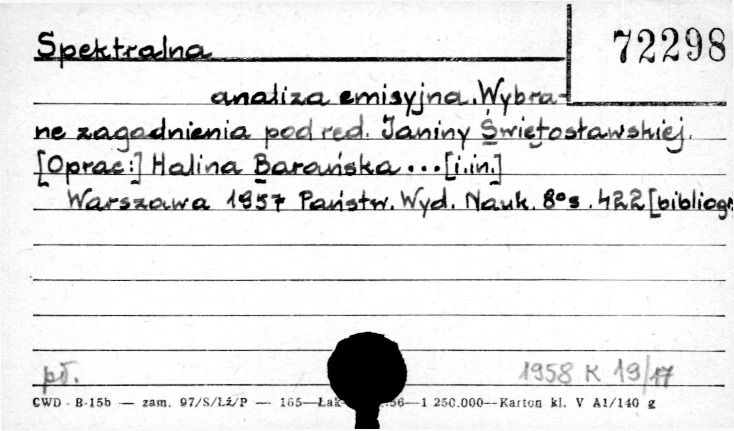 Spektralna 72298
analiza emisyjna. Wybra-
ne zagadnienia pod red. Janiny Świętosławskiej.
[Oprac:] Halina Barańska ... [i.in.]
Warszawa 1957 Państw. Wyd. Nauk. 8° s. 422 [bibliogr
pł. 1958 K 19/17
CWD - B-15b — zam. 97/S/Łż/P — 165—Łak 56—1 250.000—Karton kl. V A1/140 g